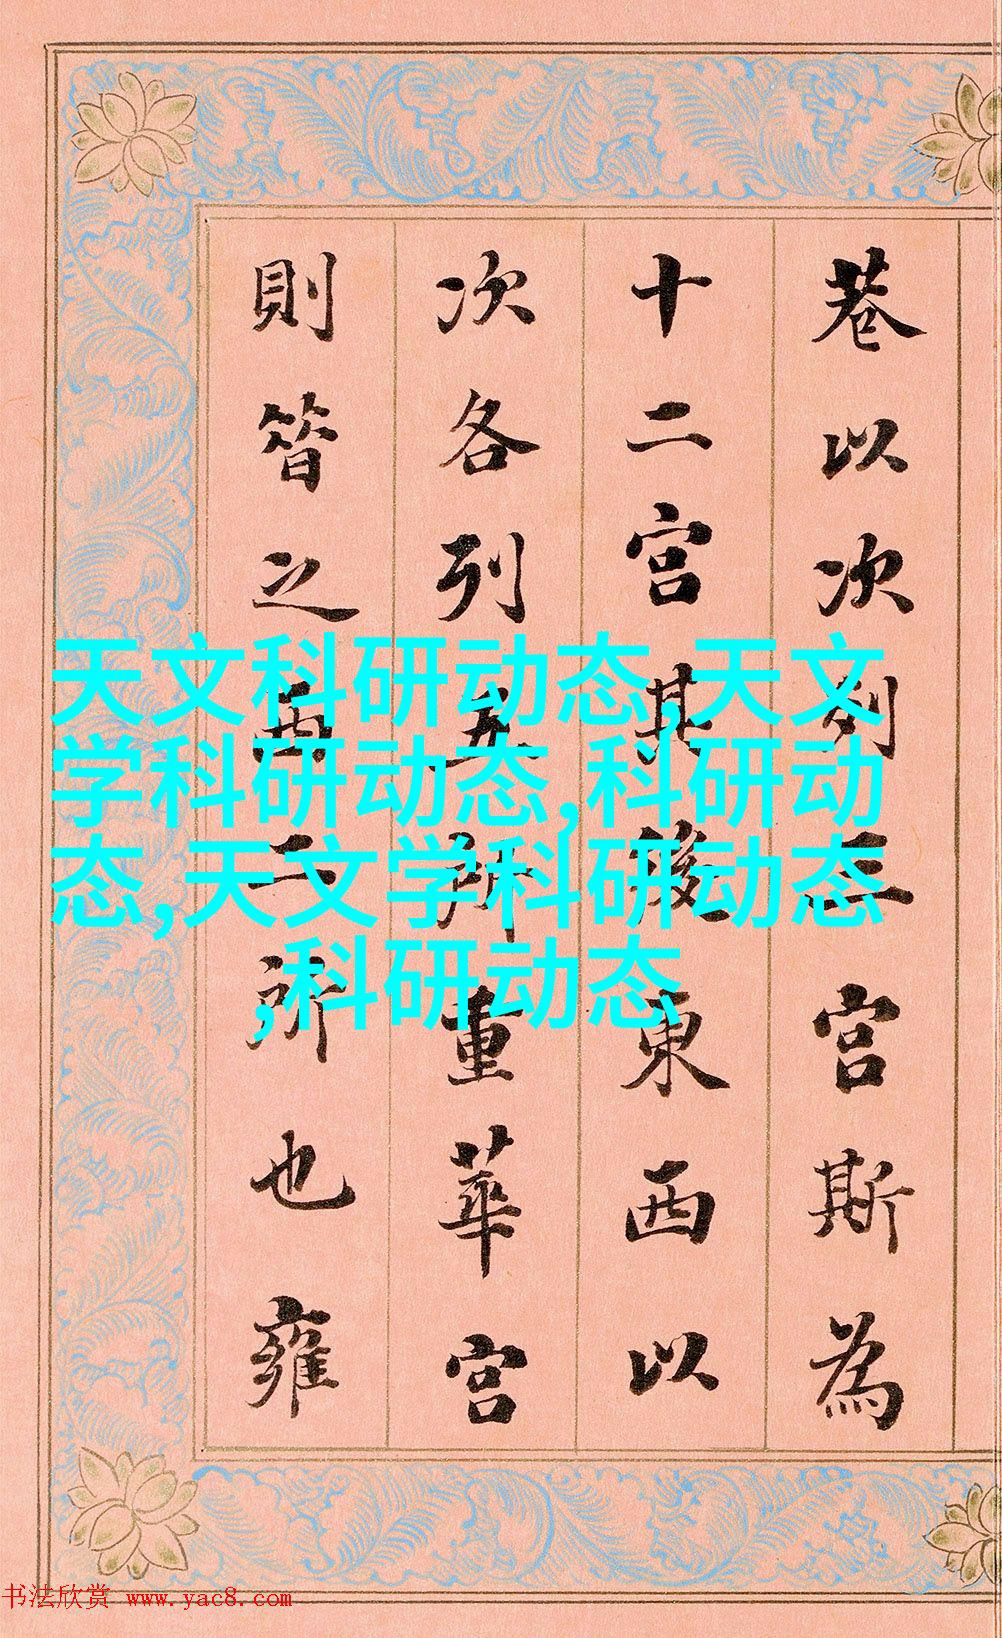 巷以次列三宫斯為
十二宫其後東西以
次各列五所重華宫
則昔之西二所也雍
天文科研动态,天文
学科研动态,科研动
态,天文学科研动态
,科研动态
书法欣赏 www.yac8.com